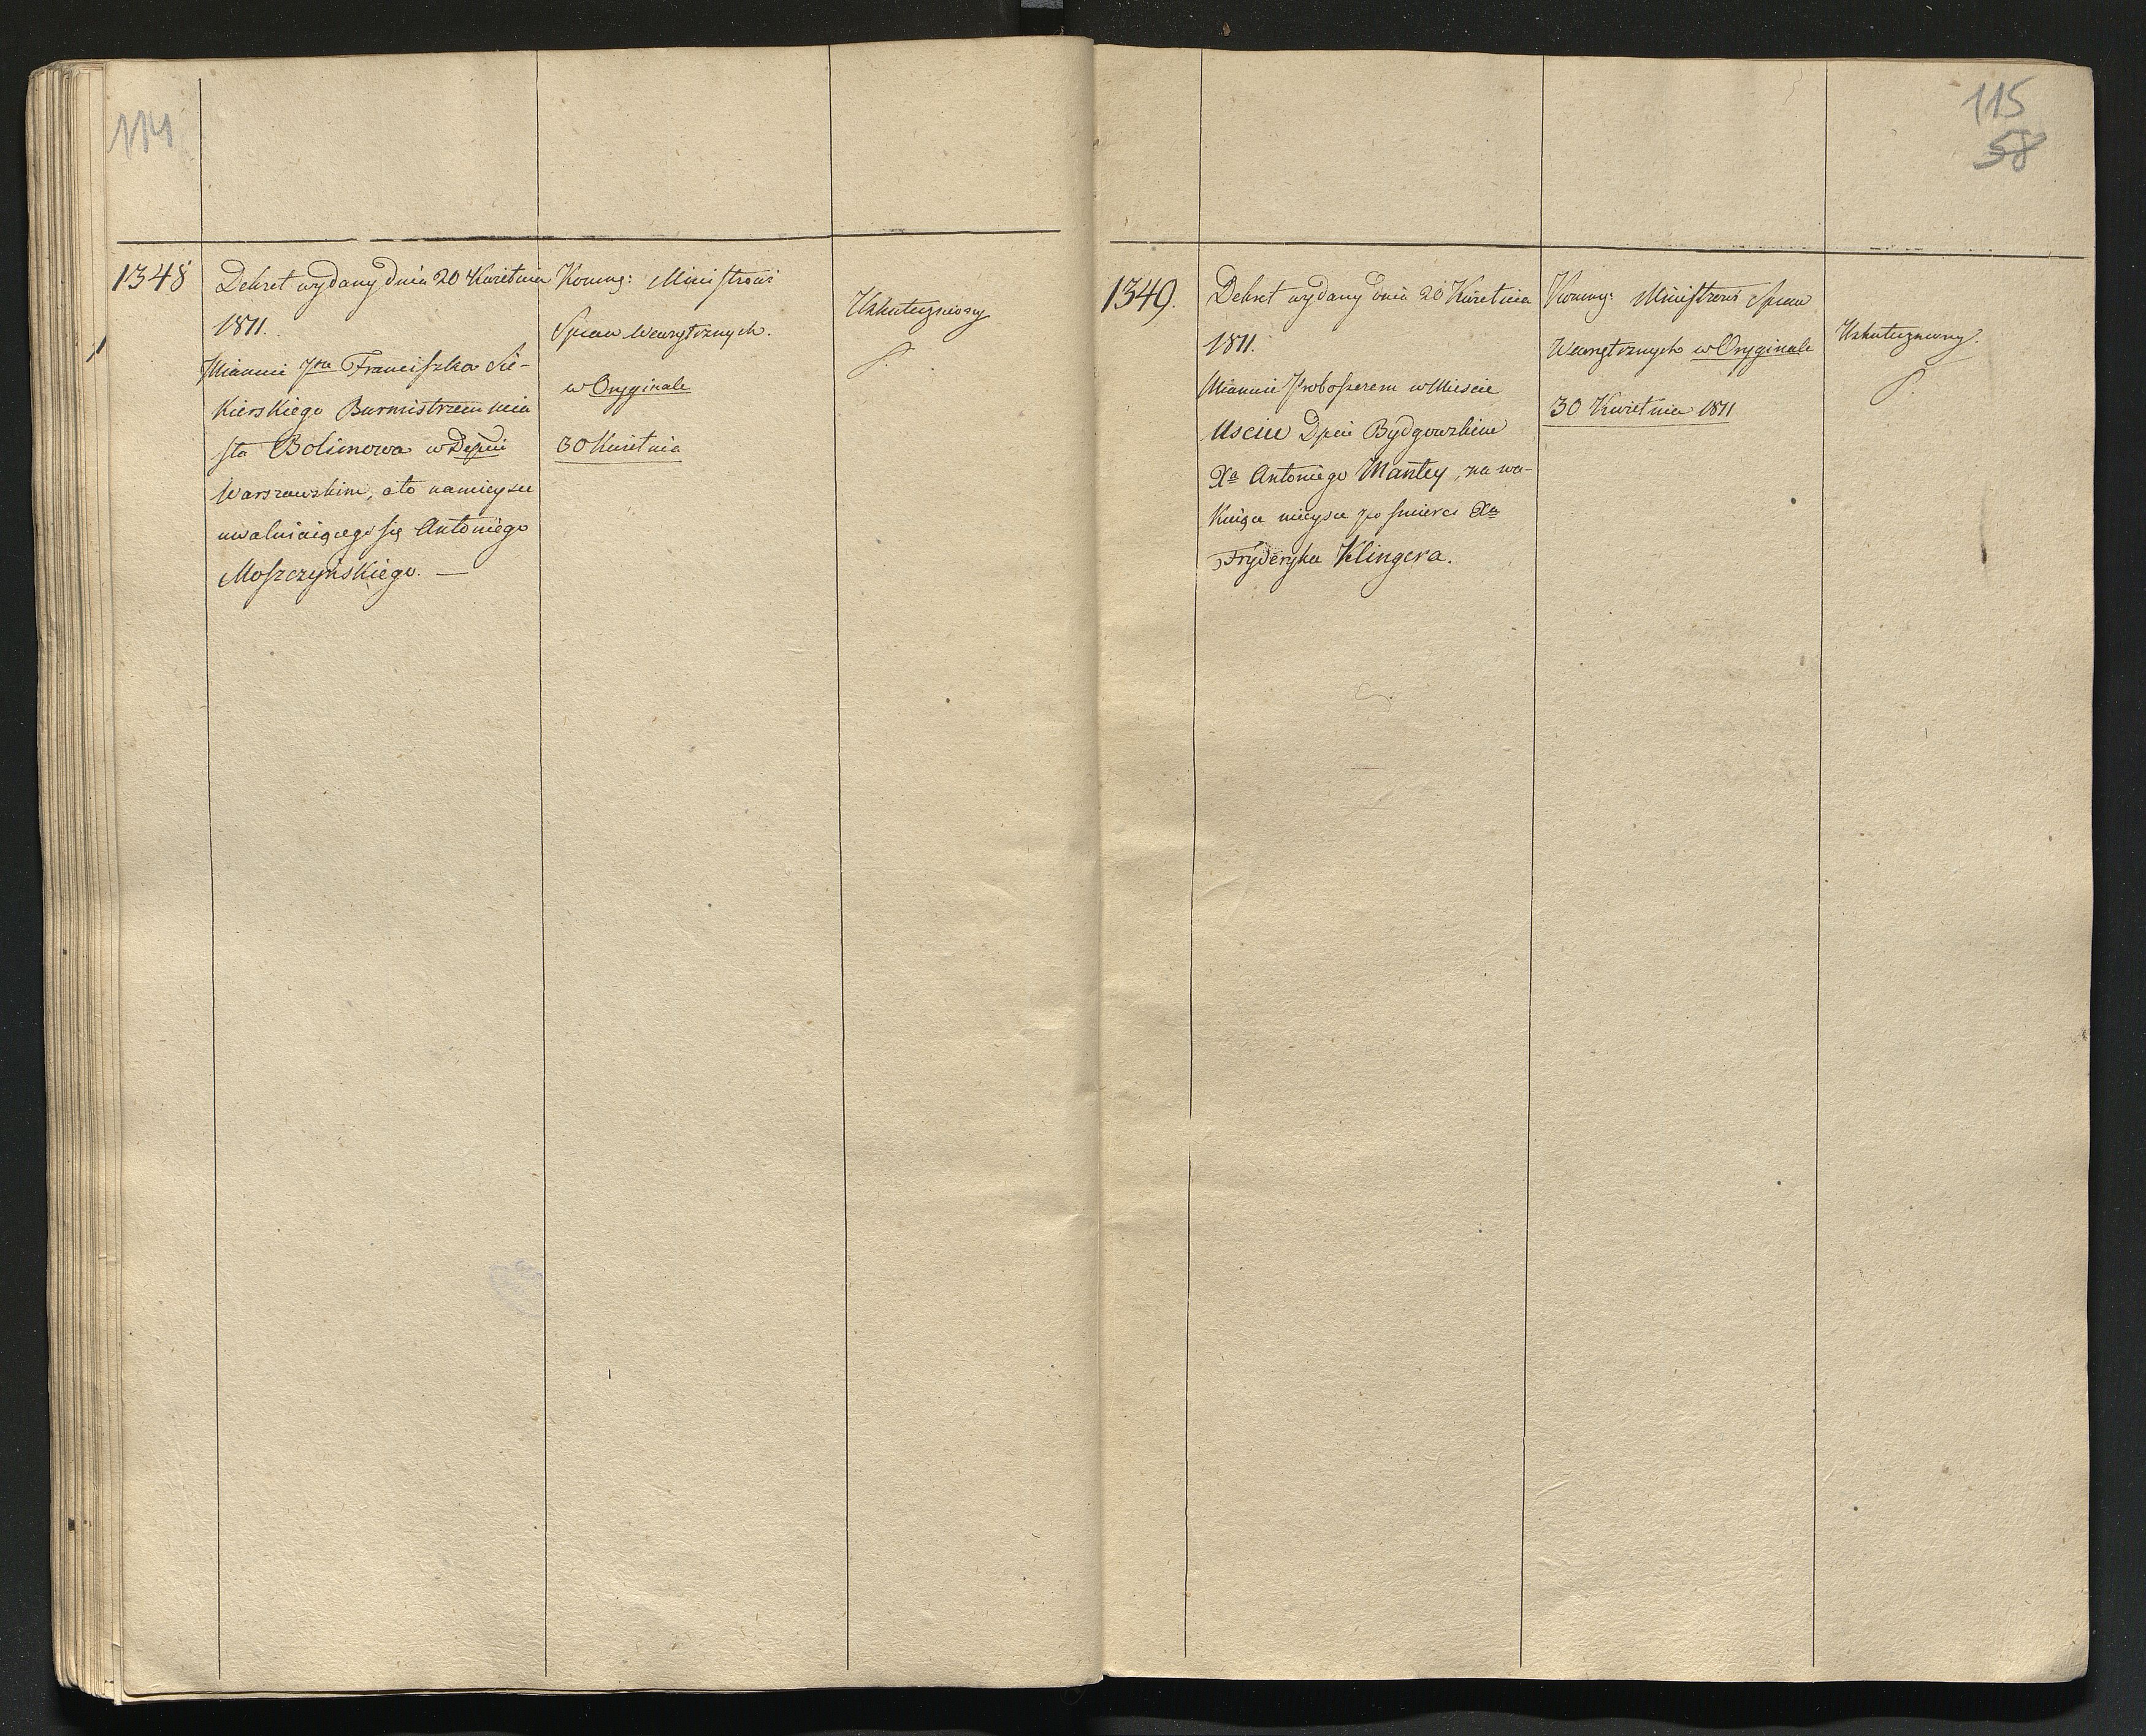 114
1348
Dekret wydany dnia 20 Kwietnia
1811.
Mianuie Pna Franciszka Sie-
kierskiego Burmistrzem mia
sta Bolimowa w Depcie
Warszawskim, a to na mieysce
uwalniaiącego się Antoniego
Moszczyńskiego. —
Kommg: Ministrowi
Spraw Wewnętrznych.
w Oryginale
30 Kwietnia
Uskuteczniony
115
58
1349.
Dekret wydany dnia 20 Kwietnia
1811.
Mianuie Proboszczem w Miescie
Uscie Dpcie Bydgowskim
Xa Antoniego Mantey, na wa-
kuiące mieysce po śmierci Xa
Fryderyka Klingera.
Kommg: Ministrowi Spraw
Wewnętrznych w Oryginale
30 Kwietnia 1811
Uskuteczniony.